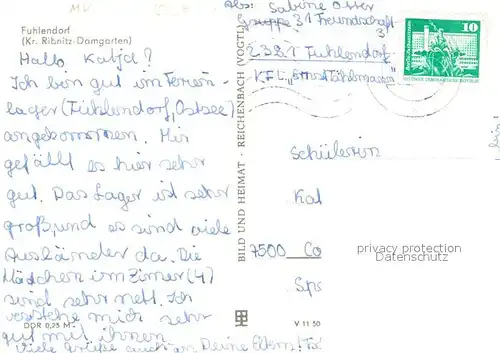 MV
Fuhlendorf
(Kr. Ribnitz-Damgarten)
Hallo Katja!
Ich bin gut im Ferien-
lager (Fuhlendorf, Ostsee)
angekommen. Mir
gefällt es hier sehr
gut. Das Lager ist sehr
groß, und es sind viele
Ausländer da. Die
Mädchen im Zimer (4)
sind sehr nett. Ich
verstehe mich sehr
gut mit ihnen.
Viele Grüße auch an Deine Eltern!
DDR 0,25 M
BILD UND HEIMAT · REICHENBACH (VOGTL)
V 11 50
Abs: Sabine
Gruppe 31 Freundschaft
2381 Fuhlendorf
KFL „Ernst Thälmann“
10
Schülerin
Kat
7500 Co
privacy protection
Datenschutz